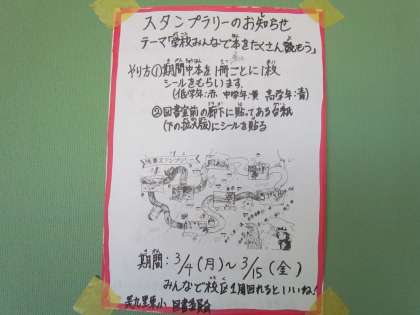 スタンプラリーのお知らせ
テーマ「学校みんなで本をたくさん読もう」
やり方①期間中本を1冊ごとに1枚
シールをもらいます。
(低学年:赤 中学年:黄 高学年:青)
②図書室前の廊下に貼ってある台紙
(下の拡大版)にシールを貼る
期間:3/4(月)〜3/15(金)
みんなで校区1周回れるといいね!
図書委員会